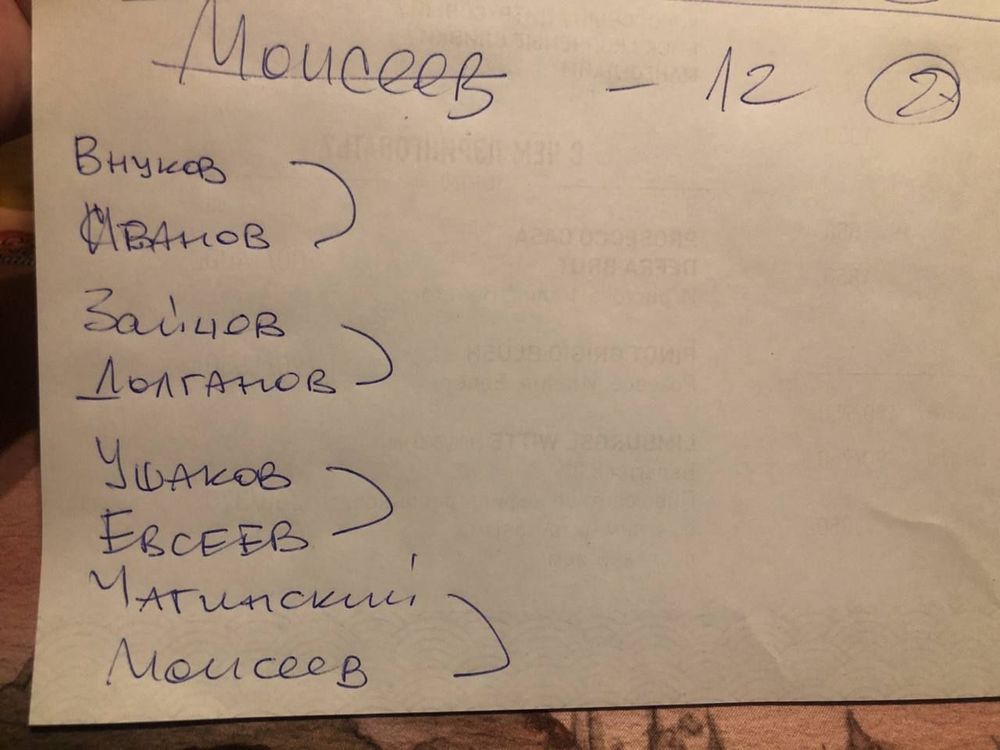 Моисеев - 12 2
Внуков
Иванов
Зайцов
Долганов
Ушаков
Евсеев
Чагинский
Моисеев